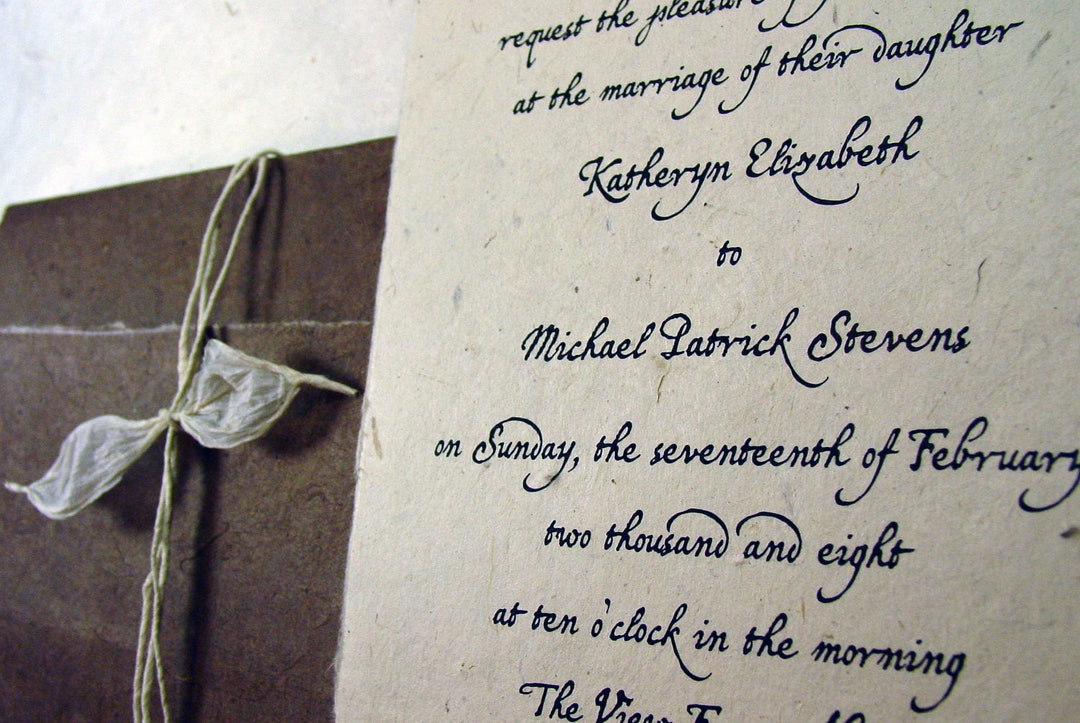 request the pleasure
at the marriage of their daughter
Katheryn Elizabeth
to
Michael Patrick Stevens
on Sunday, the seventeenth of February
two thousand and eight
at ten o'clock in the morning
The View